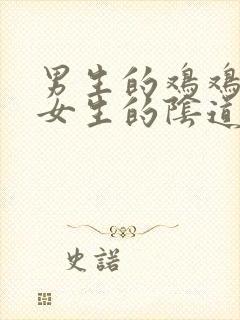 男生的鸡鸡
女生的陰道
史諾